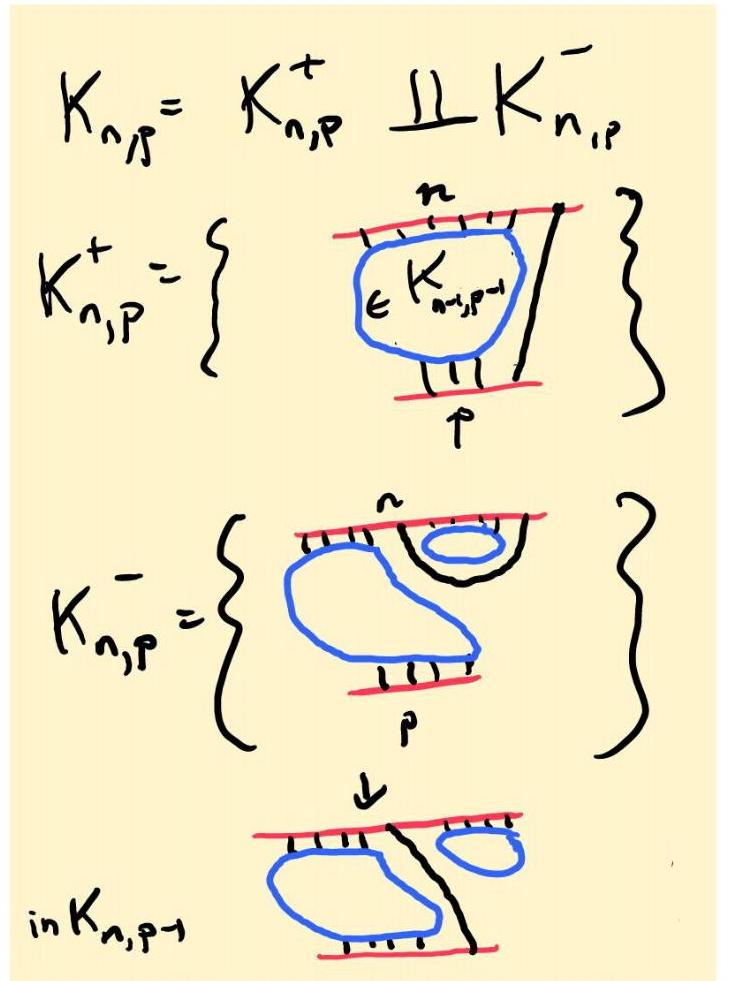 K_{n,p} = K^+_{n,p} ⨿ K^-_{n,p}
n
K^+_{n,p} = { ∈ K_{n-1,p-1} }
p
n
K^-_{n,p} = { }
p
↓
in K_{n,p-1}